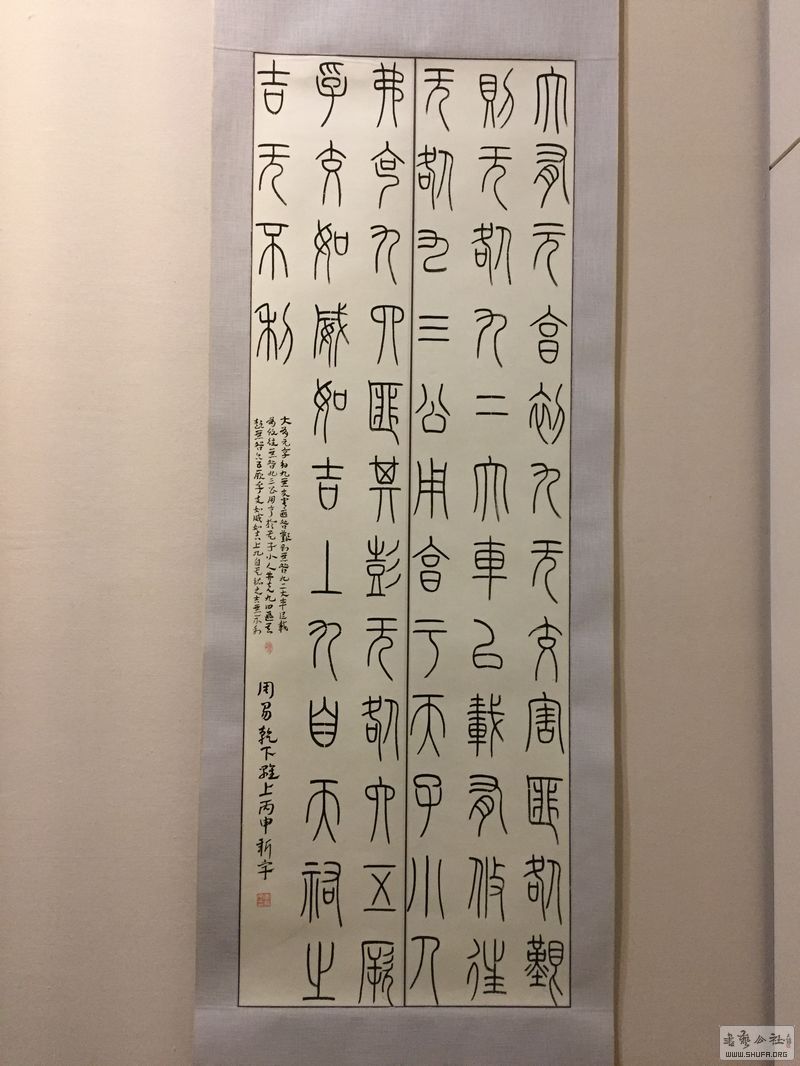 大有元亨初九无交害匪咎艱
則无咎九二大車以載有攸往
无咎九三公用亨于天子小人
弗克九四匪其彭无咎六五厥
孚交如威如吉上九自天祐之
吉无不利
大有元亨初九無交害匪咎艱則無咎九二大車以載
有攸往無咎九三公用亨於天子小人弗克九四匪其
彭無咎六五厥孚交如威如吉上九自天祐之吉無不利
周易乾下離上丙申新宇
WWW.SHUFA.ORG